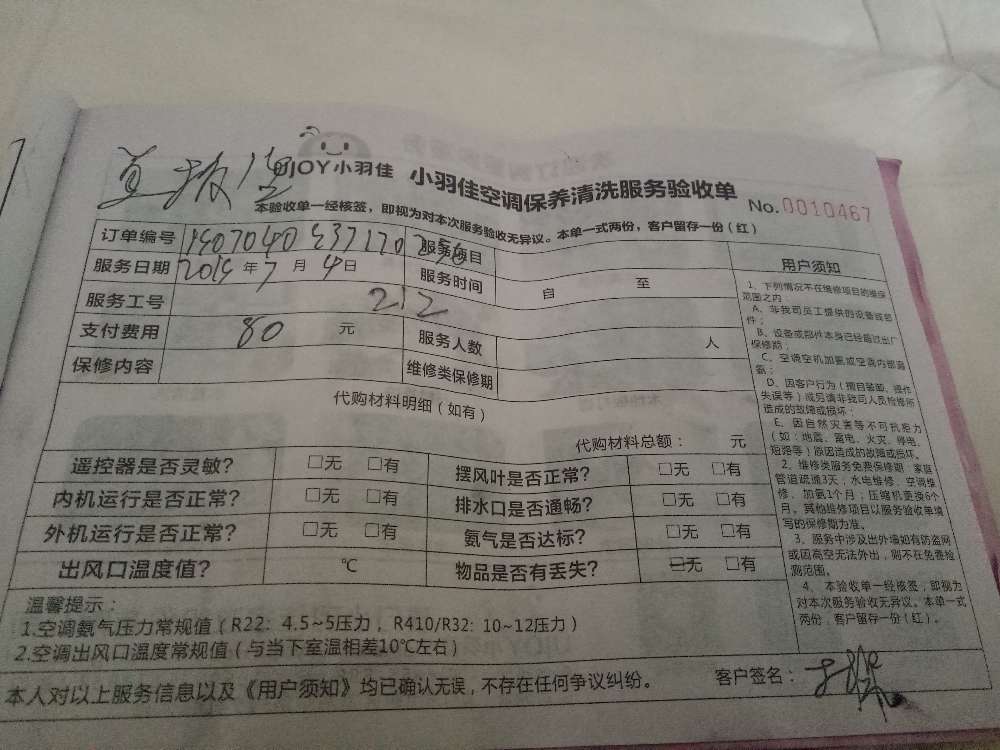 UJOY小羽佳 小羽佳空调保养清洗服务验收单
No.0010467
本验收单一经核签，即视为对本次服务验收无异议。本单一式两份，客户留存一份（红）
订单编号 服务项目
服务日期 2019年7月4日 服务时间 自 至
服务工号 212
支付费用 80 元 服务人数 人
保修内容 维修类保修期
代购材料明细（如有）
代购材料总额： 元
遥控器是否灵敏？ □无 □有 摆风叶是否正常？ □无 □有
内机运行是否正常？ □无 □有 排水口是否通畅？ □无 □有
外机运行是否正常？ □无 □有 氨气是否达标？ □无 □有
出风口温度值？ ℃ 物品是否有丢失？ □无 □有
温馨提示：
1.空调氨气压力常规值（R22：4.5~5压力，R410/R32：10~12压力）
2.空调出风口温度常规值（与当下室温相差10℃左右）
本人对以上服务信息以及《用户须知》均已确认无误，不存在任何争议纠纷。 客户签名：
用户须知
1、下列情况不在维修项目的维保
范围之内：
A、非我司员工提供的设备或部
件；
B、设备或部件本身已经超过出厂
保修期；
C、空调空机加氨或空调内部漏
氨；
D、因客户行为（擅自装卸、操作
失误等）或另请非我司人员检修所
造成的故障或损坏；
E、因自然灾害等不可抗拒力
（如：地震、雷电、火灾、停电、
短路等）原因造成的故障或损坏。
2、维修类服务免费保修期：家庭
管道疏通3天；水电维修、空调维
修、加氨1个月；压缩机更换6个
月。其他维修项目以服务验收单填
写的保修期为准。
3、服务中涉及出外墙如有防盗网
或因高空无法外出，则不在免费检
测范围。
4、本验收单一经核签，即视为
对本次服务验收无异议。本单一式
两份，客户留存一份（红）。